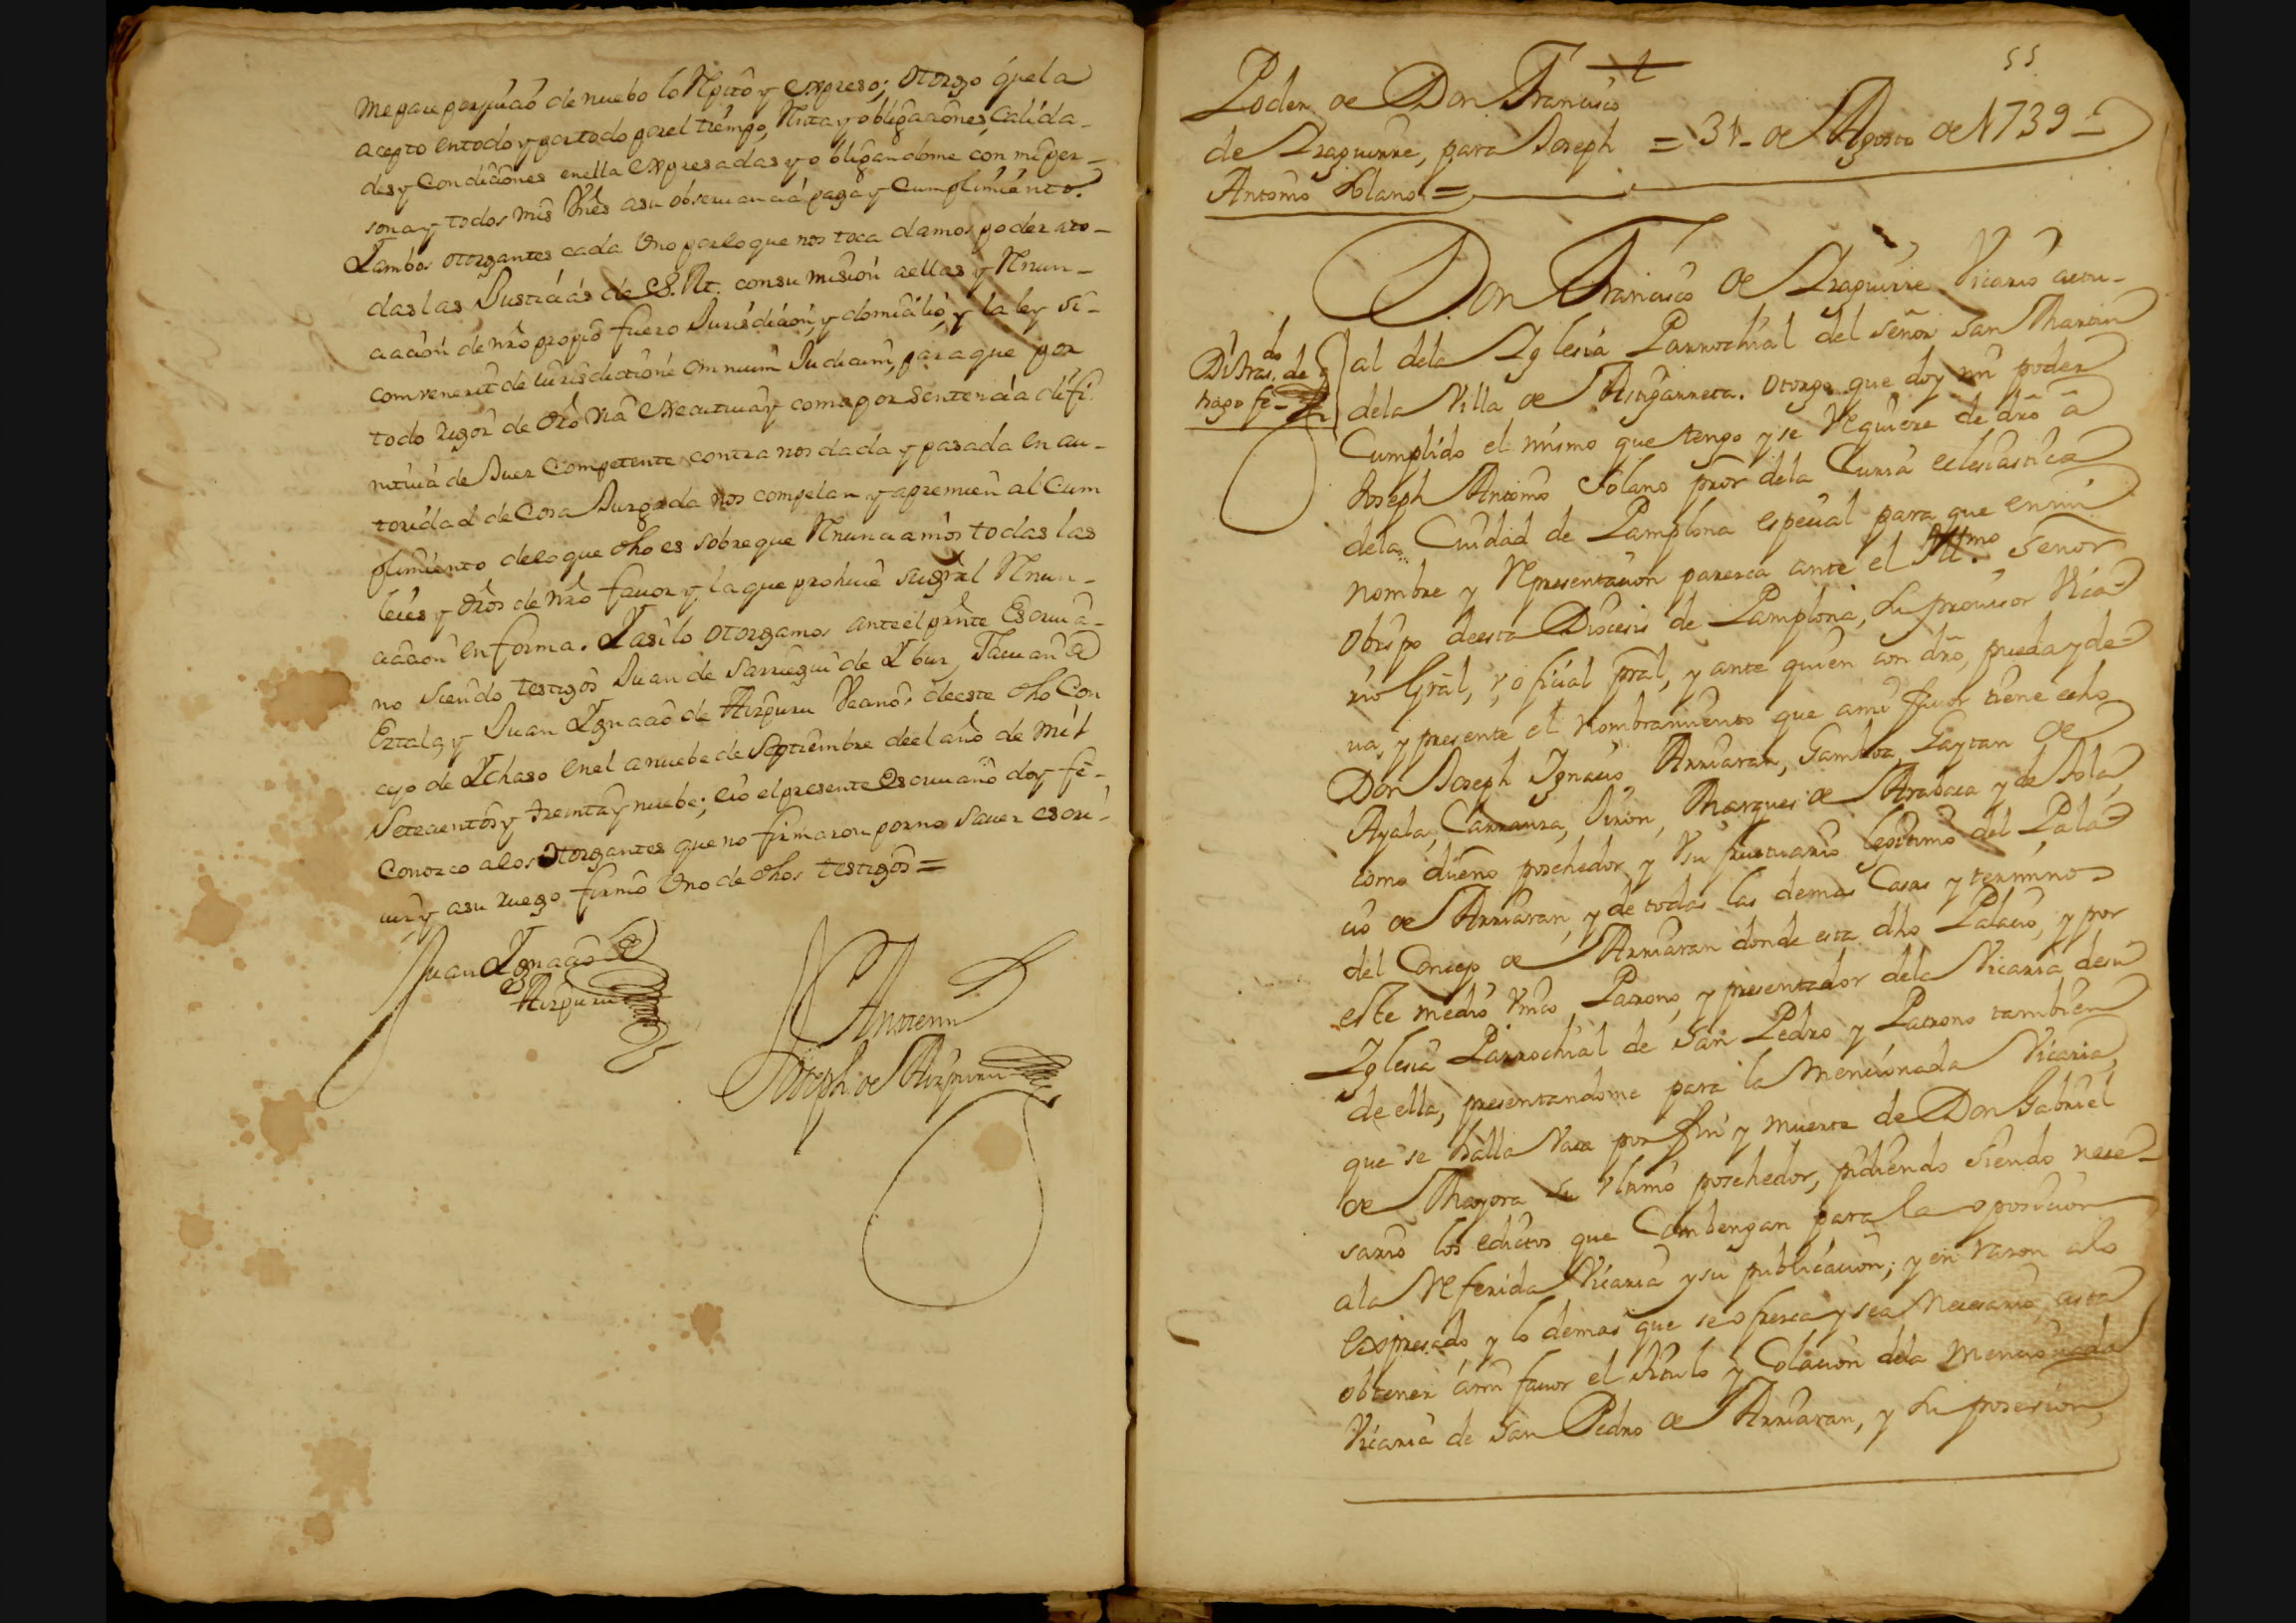 me pare perjuicio de nuebo lo repito y expreso; otorgo que la
acepto en todo y por todo por el tiempo, Renta y obligaciones, Calida-
des y Condiciones en ella expresadas y obligandome con mi per-
sona y todos mis Vnēs a su obseruancia paga y Cumplimiento.
Y ambos otorgantes cada Uno por lo que nos toca damos poder a to-
das las Justicias de S. M. con sumision a ellas y Renun-
ciacion de nrō propio fuero Jurisdicion, y domicilio, y la ley si
combenerit de iurisdictione omnium Judicum, para que por
todo rigor de drō via executiua y como por Sentencia difi-
nitiua de Juez Competente contra nos dada y pasada en au-
toridad de Cosa Juzgada nos compelan y apremien al Cum
plimiento de lo que dho es sobre que Renunciamos todas las
leies y drōs de nrō fauor y la que prohiue su grāl Renun-
ciacion en forma. Y asi lo otorgamos ante el prnte Escriua-
no siendo testigos Juan de Sarriegui de Ybur,
y Juan Ygnacio de Aizpuru Vecinos de este dho Con
cejo de Ychaso en el a nuebe de Septiembre de el año de mil
Setecientos y treinta y nuebe; e io el presente Escriuano doy fe-
Conozco a los otorgantes que no firmaron por no Sauer escri-
uir y a su ruego firmó Uno de dhos testigos =
Juan Ygnacio de
Aizpuru
Ante mi
Joseph de Aizpuru
55
Poder de Don Francisco
de Yraguirre, para Joseph = 31- de Agosto de 1739-
Antonio Solano =
Don Francisco de Yraguirre Vicario actu-
Di tras.do de q
hago fe-
al dela Yglesia Parrochial del señor San Martin
dela Villa de Asteasu. Otorgo que doy mi poder
Cumplido el mismo que tengo y se Requiere de drō â
Joseph Antonio Solano pror dela Curia eclesiastica
dela Ciudad de Pamplona especial para que en mi
nombre y Representacion paresca ante el Illmo Señor
Obispo de esta Diocesis de Pamplona, su prouisor Vica-
rio Grāl, y oficial prāl, y ante quien con drō, pueda y de-
ua, y presente el nombramiento que a mi fauor tiene echo
Don Joseph Ygnacio Arriaran, Gamboa, Gaytan de
Ayala, Giron, Marques de Arabaca y de Sola,
como dueño poshedor y Vsufructuario legitimo del Pala-
cio de Arriaran, y de todas las demas Casas y terminos
del Concejo de Arriaran donde esta dho Palacio, y por
este medio Vnico Patrono, y presentador dela Vicaria de su
Yglesia Parrochial de San Pedro y Patrono tambien
de ella, presentandome para la Mencionada Vicaria,
que se halla Vaca por fin y muerte de Don Gabriel
de Mayora su Vltimo poshedor, pidiendo siendo nece-
sario los edictos que Combengan para la oposicion
ala Referida Vicaria y su publicacion; y en razon alo
expresado y lo demas que se ofresca y sea Necesario asta
obtener â mi fauor el titulo y Colacion dela Mencionada
Vicaria de San Pedro de Arriaran, y su posesion,